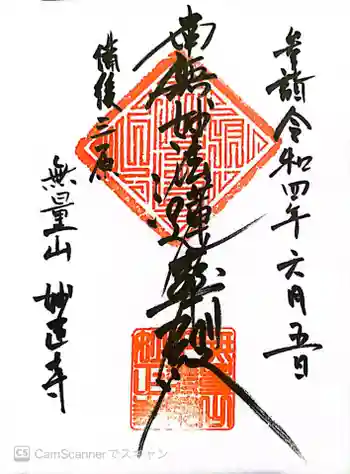 奉詣令和四年六月五日
南無妙法蓮華経
備後三原
無量山 妙正寺
CS CamScannerでスキャン